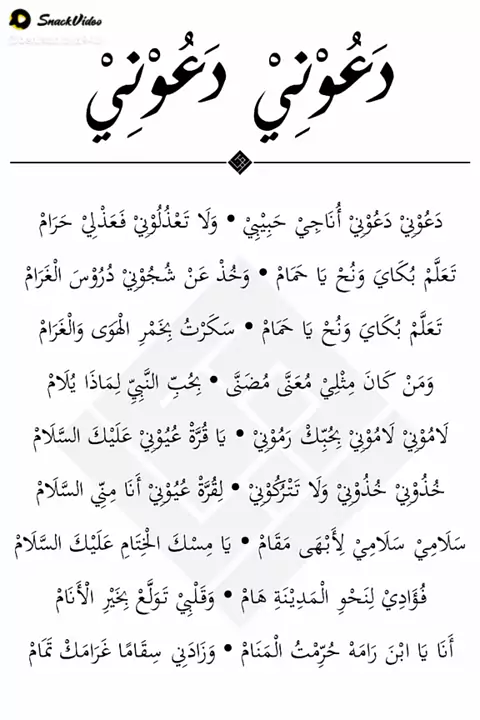 SnackVideo
دَعُوْنِيْ دَعُوْنِيْ
دَعُوْنِيْ دَعُوْنِيْ أُنَاجِيْ حَبِيْبِيْ • وَلَا تَعْذُلُوْنِيْ فَعَذْلِيْ حَرَامْ
تَعَلَّمْ بُكَايَ وَنُحْ يَا حَمَامْ • وَخُذْ عَنْ شُجُوْنِيْ دُرُوْسَ الْغَرَامْ
تَعَلَّمْ بُكَايَ وَنُحْ يَا حَمَامْ • سَكَرْتُ بِخَمْرِ الْهَوَى وَالْغَرَامْ
وَمَنْ كَانَ مِثْلِيْ مُعَنَّى مُضَنَّى • بِحُبِّ النَّبِيِّ لِمَاذَا يُلَامْ
لَامُوْنِيْ لَامُوْنِيْ بِحُبِّكْ رَمُوْنِيْ • يَا قُرَّةْ عُيُوْنِيْ عَلَيْكَ السَّلَامْ
خُذُوْنِيْ خُذُوْنِيْ وَلَا تَتْرُكُوْنِيْ • لِقُرَّةْ عُيُوْنِيْ أَنَا مِنِّي السَّلَامْ
سَلَامِيْ سَلَامِيْ لِأَبْهَى مَقَامْ • يَا مِسْكَ الْخِتَامِ عَلَيْكَ السَّلَامْ
فُؤَادِيْ لِنَحْوِ الْمَدِيْنَةِ هَامْ • وَقَلْبِيْ تَوَلَّعْ بِخَيْرِ الْأَنَامْ
أَنَا يَا ابْنَ رَامَهْ حُرِّمْتُ الْمَنَامْ • وَزَادَنِي سِقَامًا غَرَامَكْ تَمَامْ